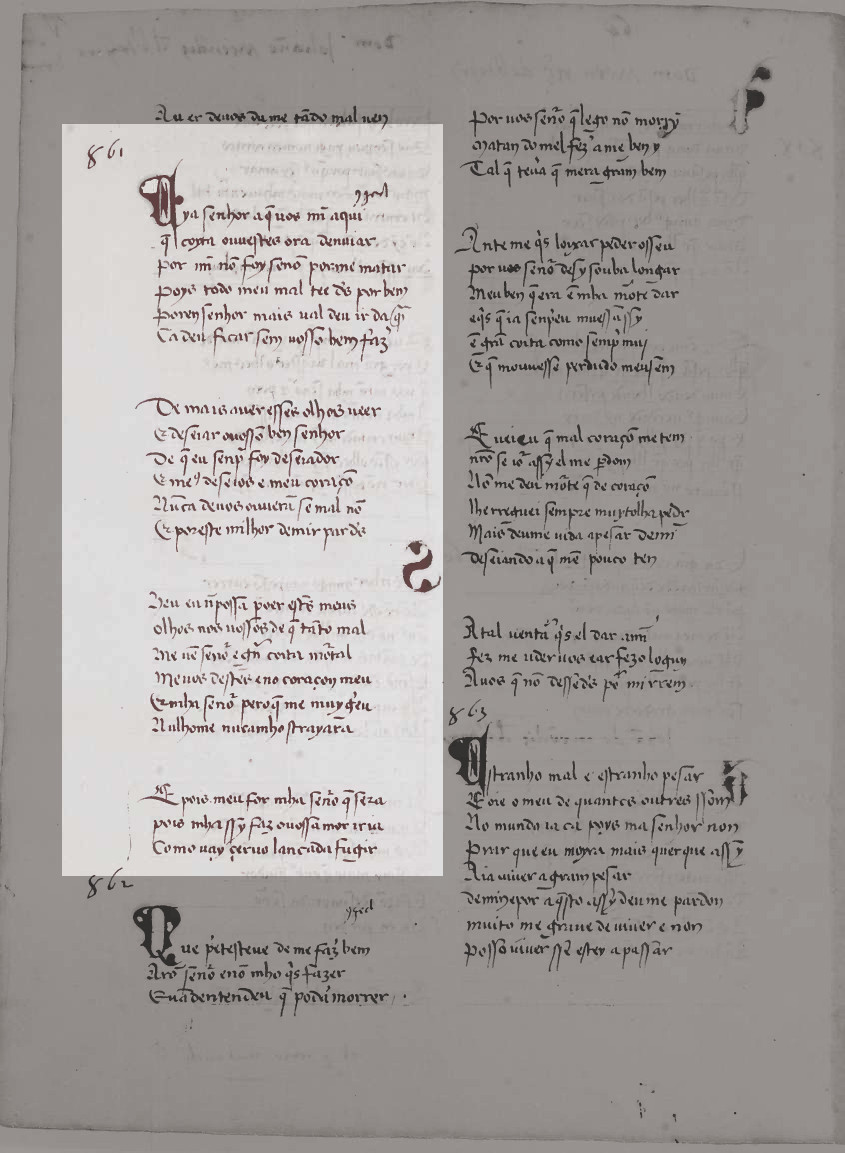 Auer deuos du me tãdo mal uen
861
Uya senhor a q̄ uos mĩ aqui
q̄ coyta ouuestes ora denuiar
por mĩ nõ foy senõ porme matar
Poys todo meu mal tee ds por bem
Poren senhor mais ual deu ir daq̄
Ca deu ficar sem uosso bem faz
De mais auer esses olhos ueer
E deseiar ouosso ben senhor
De q̄ eu senp̄ foy deseiador
E me9 deseios e meu coraçõ
Nũca deuos ouuerã se mal nõ
E por este milhor demir par ds
S
Heu eu nõ possã poer estes meus
olhos nos uossos de q̄ tãto mal
Me uẽ senõr e grã coita mortal
Me uos destes eno coraçon meu
E mha senõr pero q̄ me muy greu
Nulhome nũ cambho strayarã
E pois meu for mha senõr q̄ sera
pois mhassy faz ouossa mor ir ia
Como uay çeruo lançada fugir
862
Que pretesteue de me faz bem
Nrõ senõr e nõ mho q̄s fazer
E uã dentendeu q̄ podia morrer
Por uos senõr q̄ lego nõ morry
Matan do mel fez ame ben y
Tal q̄ teuã q̄ mera gram bem
Ante me q̄s leixar peder o sseu
por uos senõr desy souba longar
Meu ben q̄ era ẽ mha morte dar
e q̄s q̄ ia senp̄ eu uiuessassy
ẽ grã coita como senp̄ uiuj
E q̄ mouuesse perdudo meu sem
E ueieu q̄ mal coraçõ me tem
nrõ seiõr assy el me pdom
Nõ me deu morte q̄ de coraçõ
lhe rroguei sempre muy tolha pedr
Mais deu me uida a pesar de mĩ
deseiando aq̄ mẽ pouco ten
A tal uentã q̄s el dar a mĩ
fez me uderuos e ar fezo loguy
A uos q̄ nõ dessedes por mi rrem
863
Estranho mal e estranho pesar
E oie o meu de quantos outros ssom
No mundo ia ca poys ma senhor non
Praz que eu moyra mais quer que assy
Aia uiuer a gram pesar
de min e por aq̄sto assy deume pardon
muito me graue de uiuer e non
Posso uiuer sse estey a passar